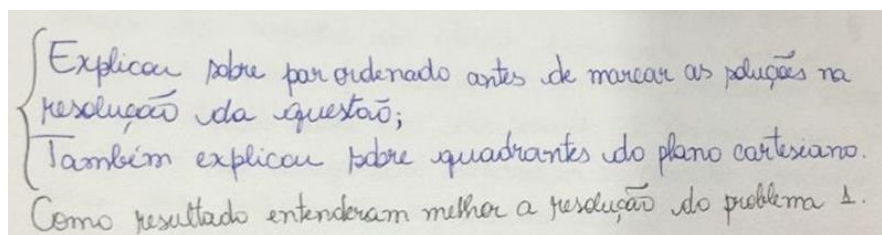 Explicou sobre par ordenado antes de marcar as soluções na
resolução da questão;
Também explicou sobre quadrantes do plano cartesiano.
Como resultado entenderam melhor a resolução do problema 1.